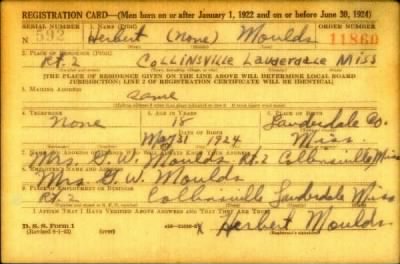 REGISTRATION CARD—(Men born on or after January 1, 1922 and on or before June 30, 1924)
SERIAL NUMBER 1. NAME (Print) ORDER NUMBER
N 592 Herbert (None) Moulds 11860
2. PLACE OF RESIDENCE (Print)
Rt. 2 Collinsville Lauderdale Miss
[THE PLACE OF RESIDENCE GIVEN ON THE LINE ABOVE WILL DETERMINE LOCAL BOARD
JURISDICTION; LINE 2 OF REGISTRATION CERTIFICATE WILL BE IDENTICAL]
3. MAILING ADDRESS
same
4. TELEPHONE 5. AGE IN YEARS 6. PLACE OF BIRTH
None 18 Lauderdale Co.
DATE OF BIRTH
May 31 1924 Miss.
7. NAME AND ADDRESS OF PERSON WHO WILL ALWAYS KNOW YOUR ADDRESS
Mrs. G. W. Moulds Rt. 2 Collinsville, Miss
8. EMPLOYER'S NAME AND ADDRESS
Mrs. G. W. Moulds
9. PLACE OF EMPLOYMENT OR BUSINESS
Rt. 2 Collinsville Lauderdale Miss
I AFFIRM THAT I HAVE VERIFIED ABOVE ANSWERS AND THAT THEY ARE TRUE.
D. S. S. Form 1
Herbert Moulds